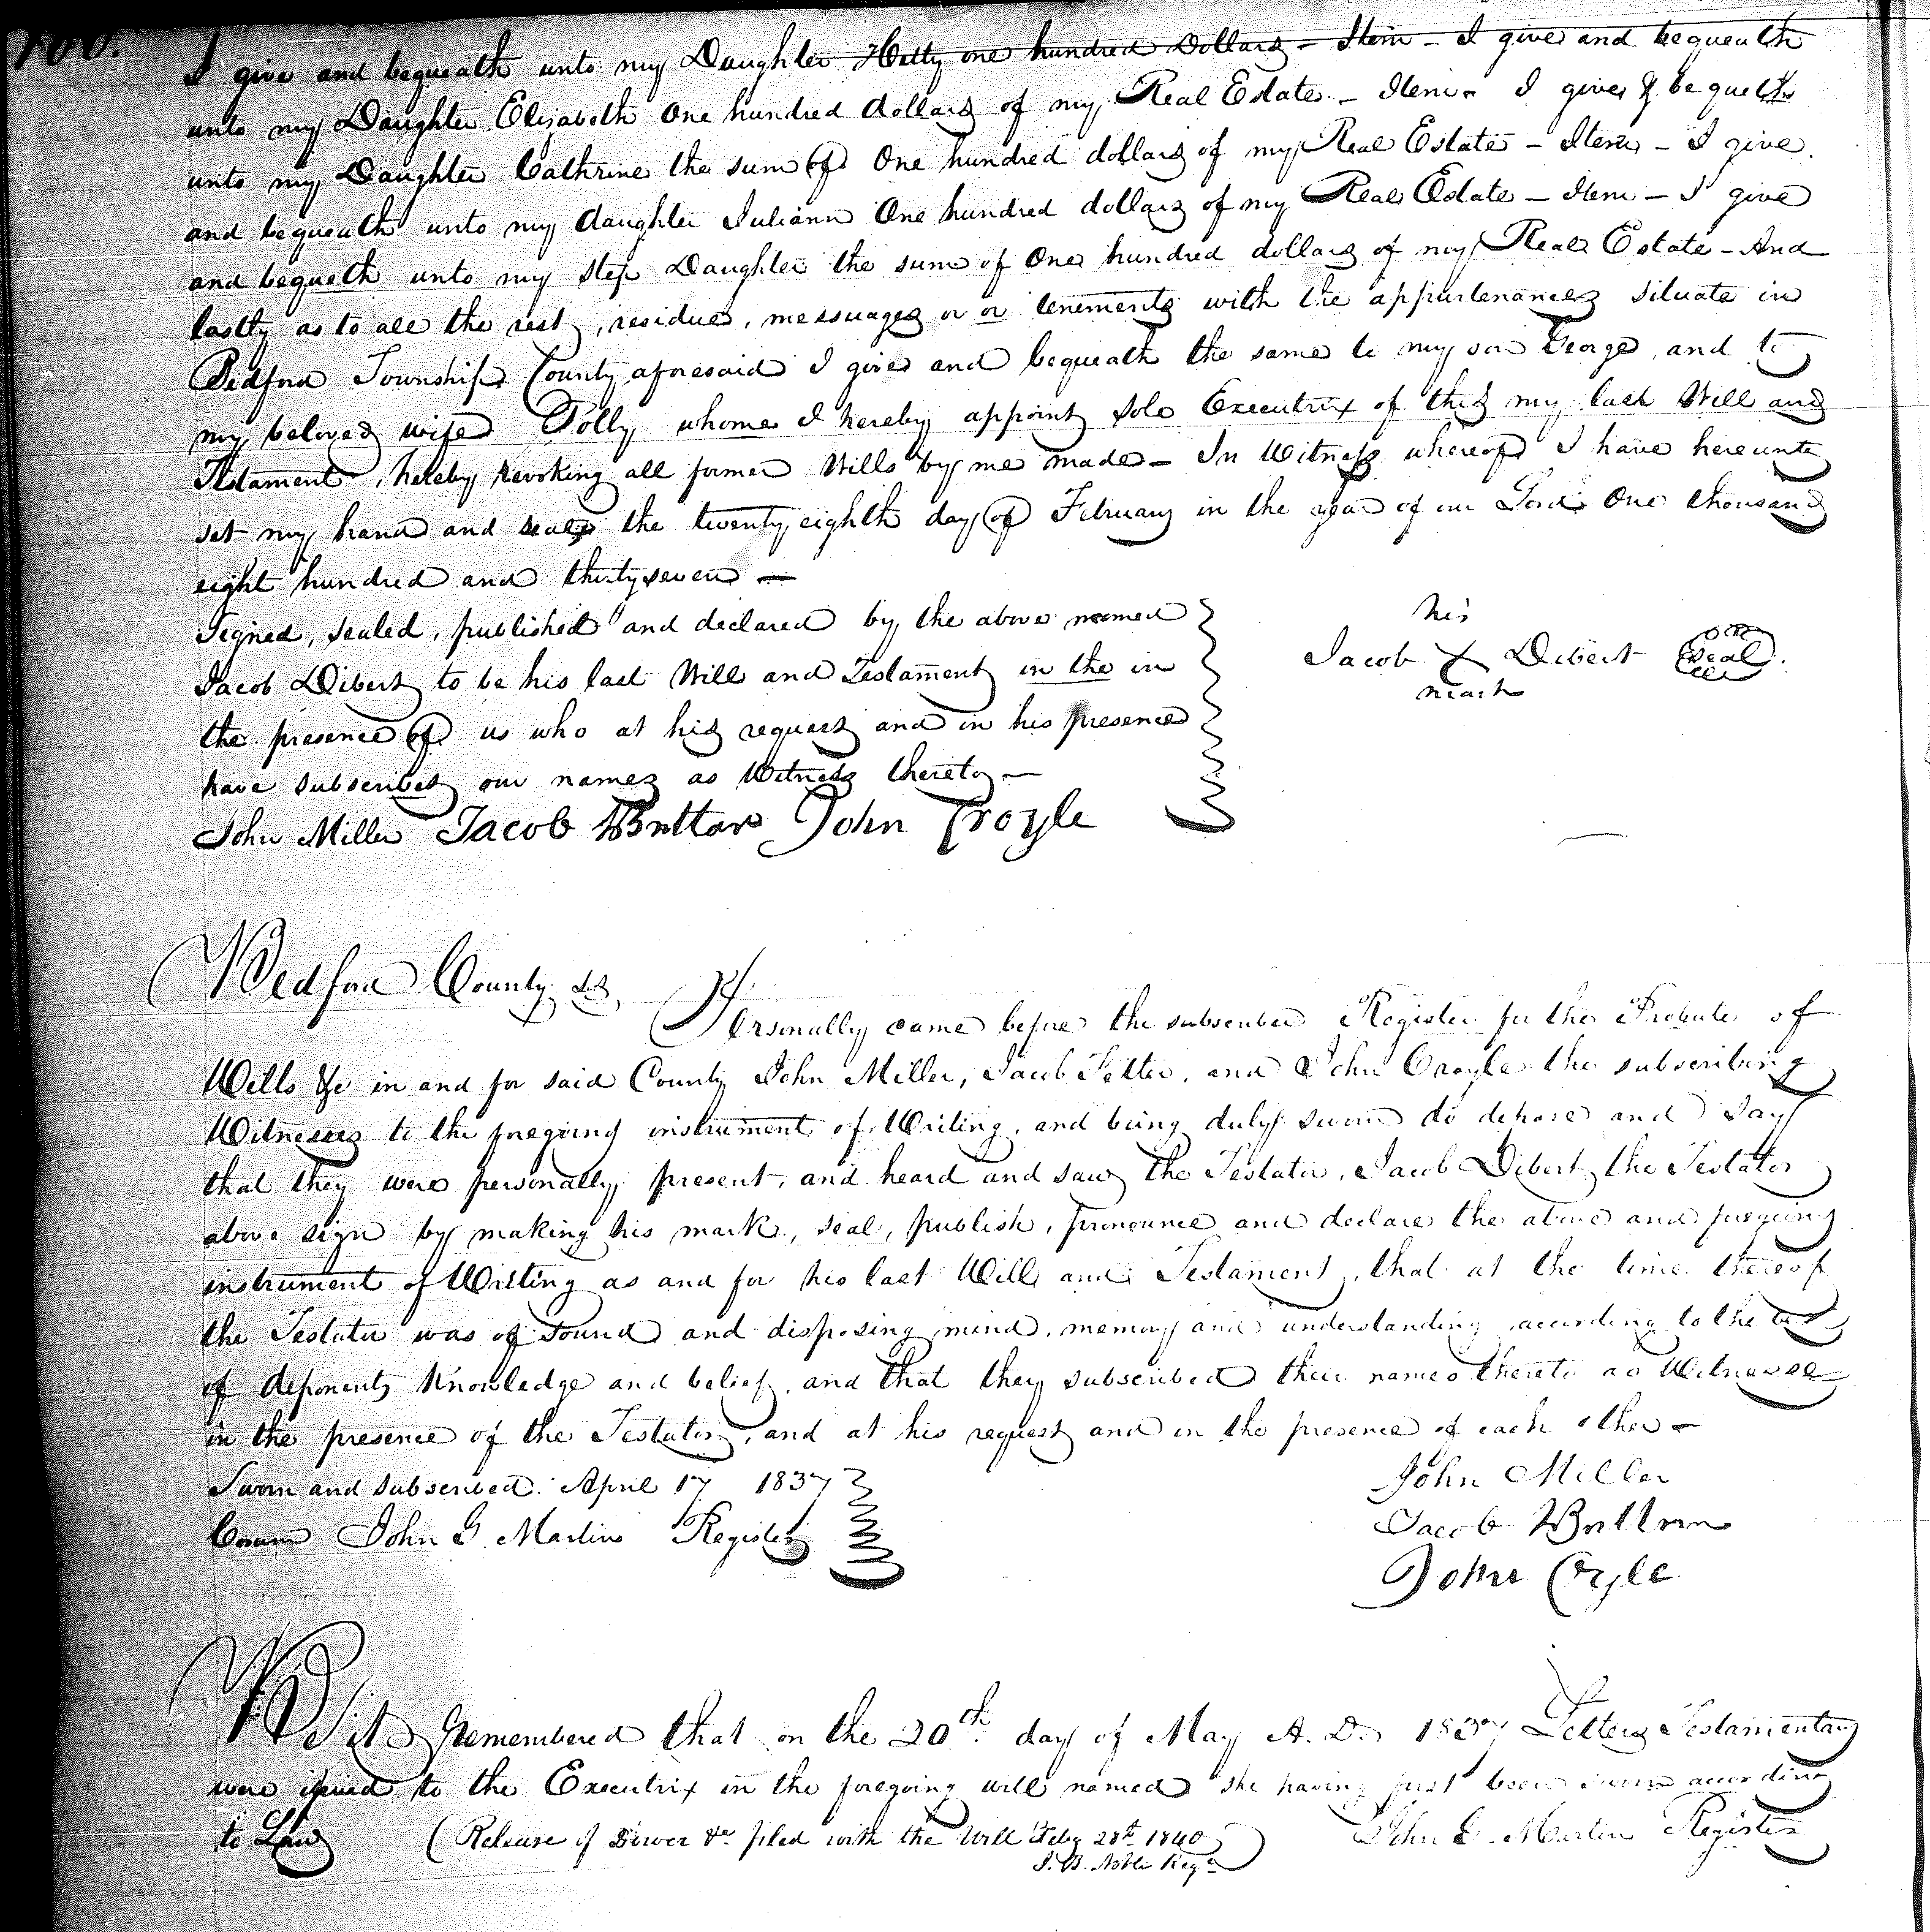 I give and bequeath unto my Daughter Hetty one hundred Dollars – Item – I give and bequeath
unto my Daughter Elizabeth One hundred dollars of my Real Estate – Item – I give & bequeth
unto my Daughter Cathrine the sum of One hundred dollars of my Real Estate – Item – I give
and bequeath unto my daughter Juliann One hundred dollars of my Real Estate – Item – I give
and bequeth unto my step Daughter the sum of One hundred dollars of my Real Estate – And
lastly as to all the rest, residue, messuages or or tenements with the appurtenances situate in
Bedford Township County aforesaid I give and bequeath the same to my son George and to
my beloved wife Polly whome I hereby appoint sole Executrix of this my last Will and
Testament, hereby revoking all former Wills by me made – In Witness whereof I have hereunto
set my hand and seal the twenty eighth day of February in the year of our Lord One thousand
eight hundred and thirty seven –
Signed, sealed, published and declared by the above named
Jacob Dibert to be his last Will and Testament in the in
the presence of us who at his request and in his presence
have subscribed our names as Witness thereto –
his
Jacob X Dibert Seal
mark
John Miller Jacob John Croyle
Bedford County ss,
Personally came before the subscriber Register for the Probate of
Wills &c in and for said County John Miller, Jacob and John Croyle the subscribing
Witnesses to the foregoing instrument of Writing, and being duly sworn do depose and say
that they were personally present, and heard and saw the Testator, Jacob Dibert the Testator
above sign by making his mark, seal, publish, pronounce and declare the above and foregoing
instrument of Writing as and for his last Will and Testament, that at the time thereof
the Testator was of sound and disposing mind, memory and understanding according to the best
of deponents Knowledge and belief, and that they subscribed their names thereto as Witnesses
in the presence of the Testator, and at his request and in the presence of each other –
Sworn and subscribed April 17 1837
Coram John G. Martin Register
John Miller
Jacob
John Cryle
Be it Remembered that on the 20th day of May A. D. 1837 Letters Testamentary
were issued to the Executrix in the foregoing will named she having first been sworn according
to Law
(Release of Dower &c filed with the Will Feby 28th 1840
J. B. Noble Regr)
John G. Martin Register